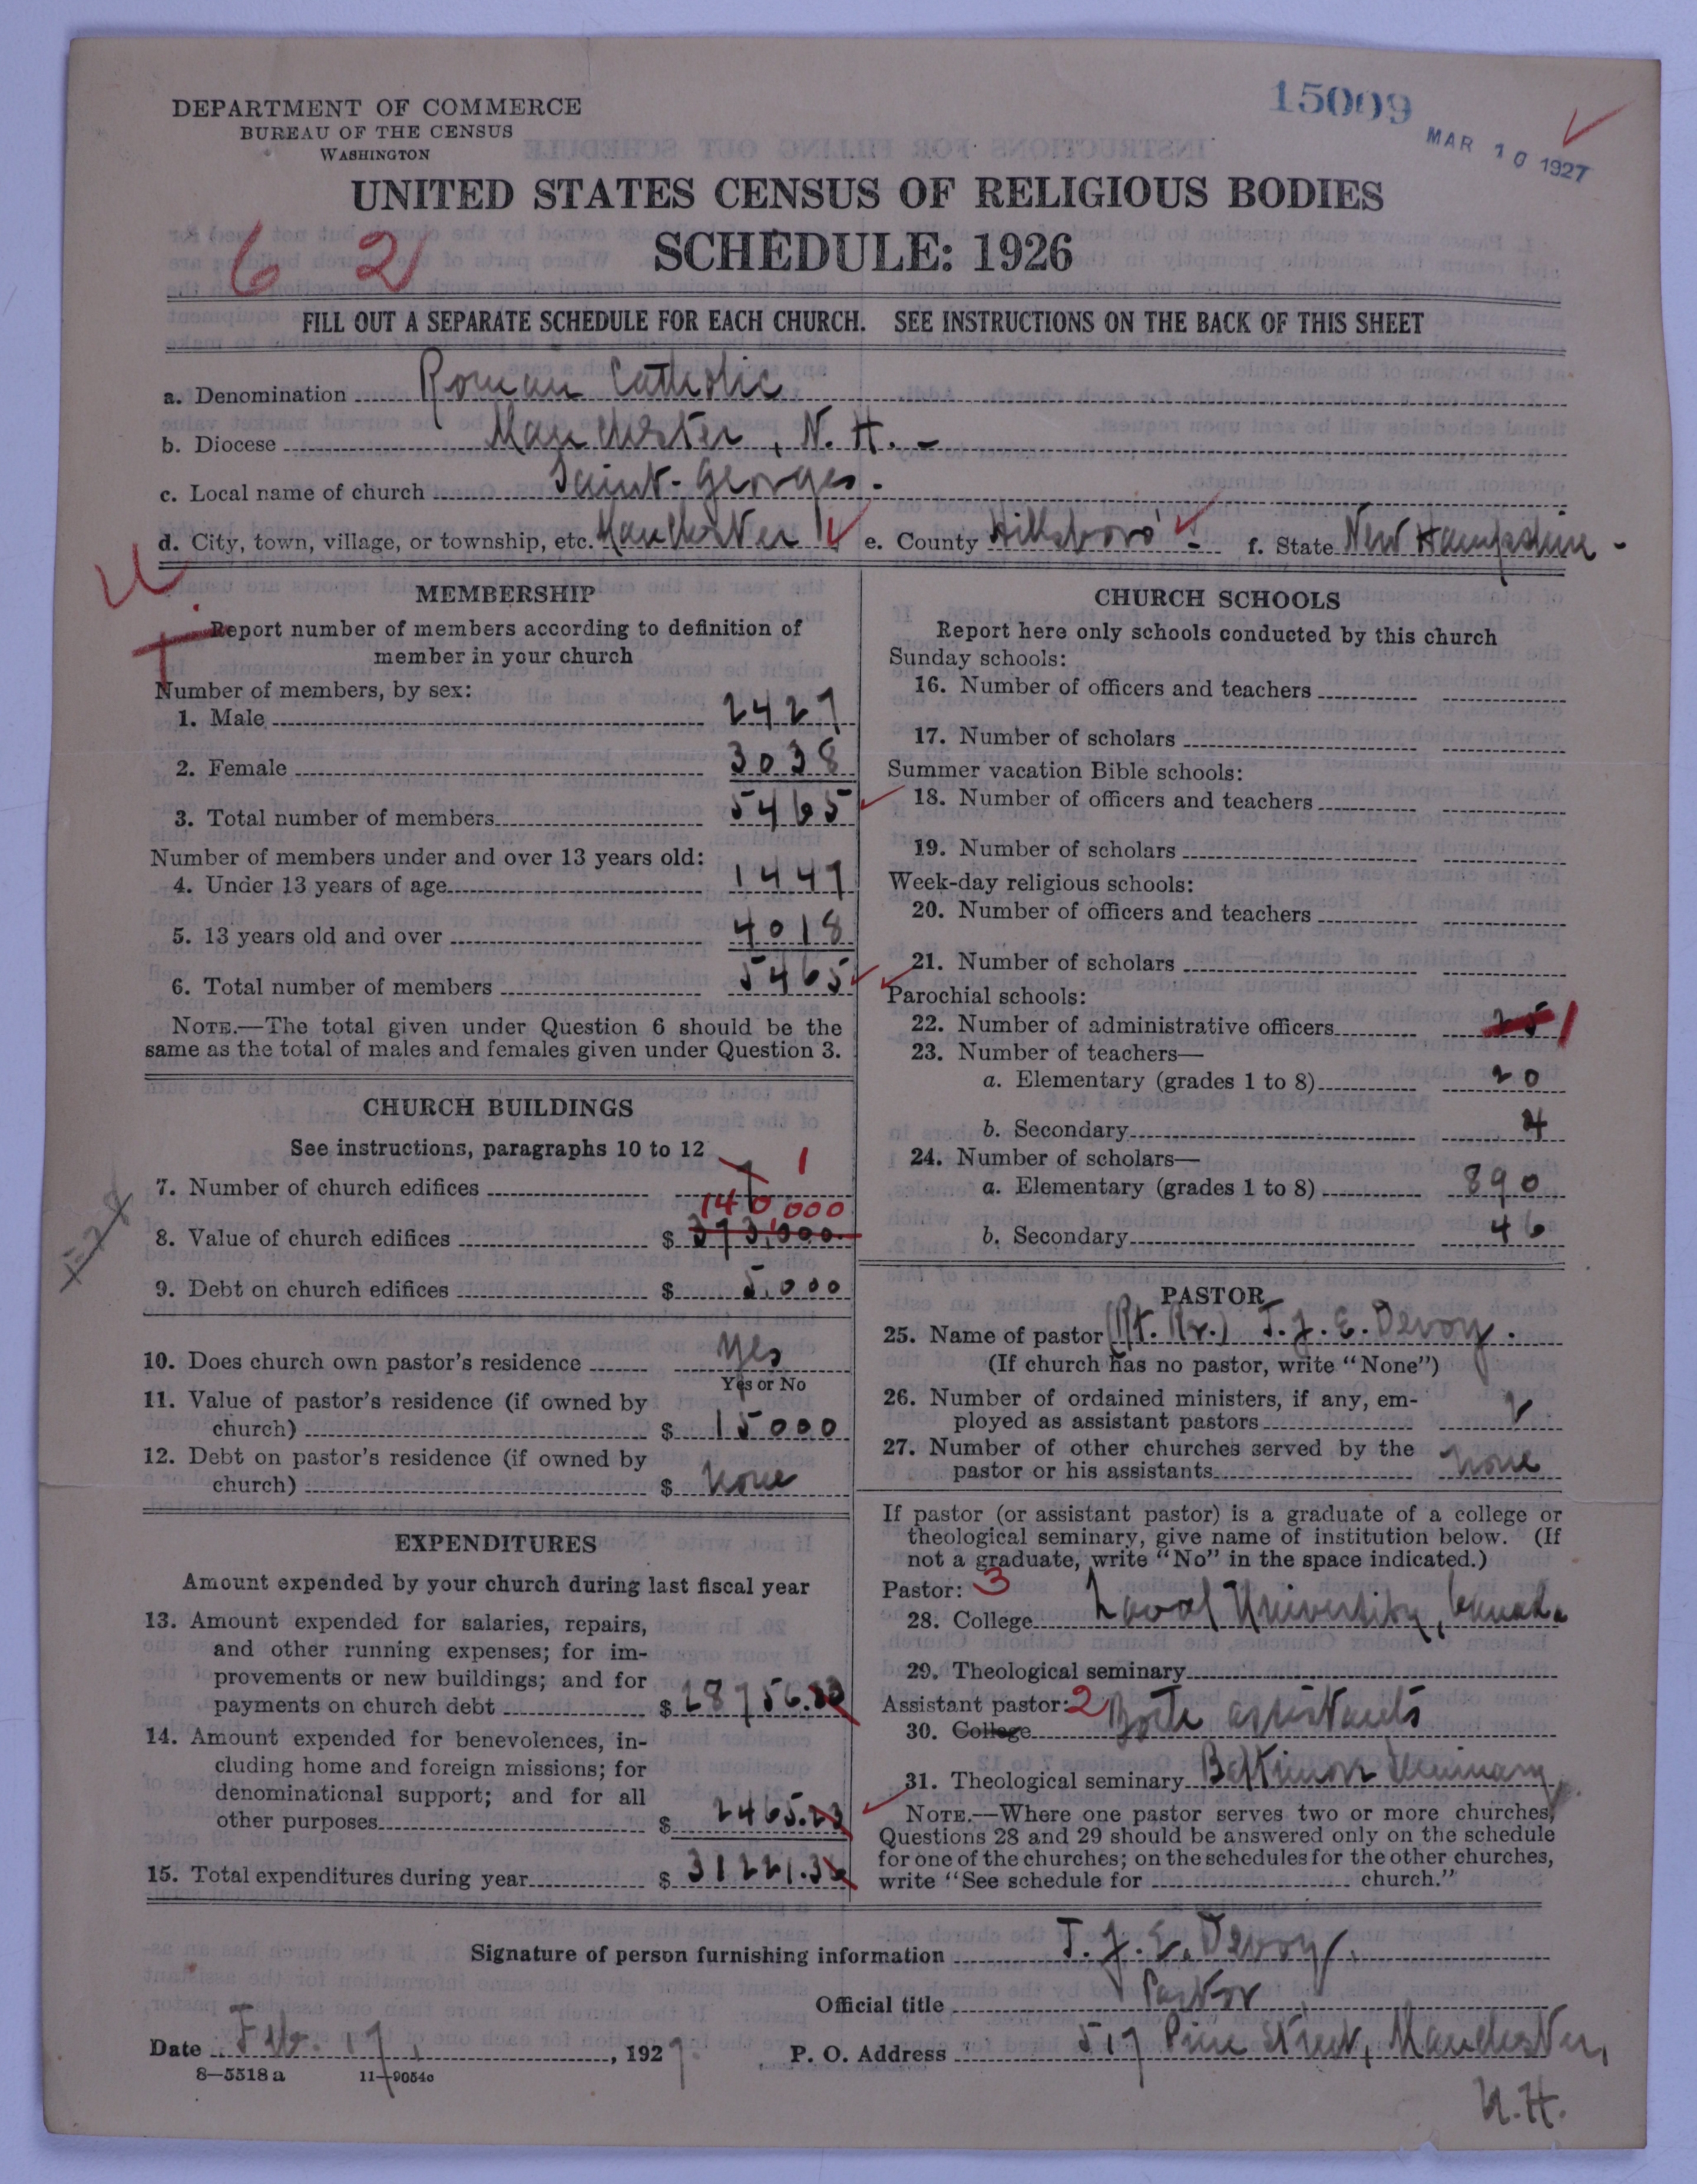 15009
MAR 10 1927
DEPARTMENT OF COMMERCE
BUREAU OF THE CENSUS
WASHINGTON
UNITED STATES CENSUS OF RELIGIOUS BODIES
SCHEDULE: 1926
6 2
FILL OUT A SEPARATE SCHEDULE FOR EACH CHURCH. SEE INSTRUCTIONS ON THE BACK OF THIS SHEET
a. Denomination Roman Catholic
b. Diocese Manchester, N. H. -
c. Local name of church Saint-Georges.
d. City, town, village, or township, etc. Manchester e. County Hillsboro' f. State New Hampshire -
MEMBERSHIP
Report number of members according to definition of
member in your church
Number of members, by sex:
1. Male 2427
2. Female 3038
3. Total number of members 5465
Number of members under and over 13 years old:
4. Under 13 years of age 1447
5. 13 years old and over 4018
6. Total number of members 5465
NOTE.—The total given under Question 6 should be the
same as the total of males and females given under Question 3.
CHURCH BUILDINGS
See instructions, paragraphs 10 to 12
7. Number of church edifices 1
140000
8. Value of church edifices $ 373,000
9. Debt on church edifices $ 5,000
10. Does church own pastor's residence Yes
Yes or No
11. Value of pastor's residence (if owned by
church) $ 15000
12. Debt on pastor's residence (if owned by
church) $ None
EXPENDITURES
Amount expended by your church during last fiscal year
13. Amount expended for salaries, repairs,
and other running expenses; for im-
provements or new buildings; and for
payments on church debt $ 28756.
14. Amount expended for benevolences, in-
cluding home and foreign missions; for
denominational support; and for all
other purposes $ 2465.23
15. Total expenditures during year $ 31221.36
CHURCH SCHOOLS
Report here only schools conducted by this church
Sunday schools:
16. Number of officers and teachers
17. Number of scholars
Summer vacation Bible schools:
18. Number of officers and teachers
19. Number of scholars
Week-day religious schools:
20. Number of officers and teachers
21. Number of scholars
Parochial schools:
22. Number of administrative officers 25 1
23. Number of teachers—
a. Elementary (grades 1 to 8) 20
b. Secondary 4
24. Number of scholars—
a. Elementary (grades 1 to 8) 890
b. Secondary 46
PASTOR
25. Name of pastor (Rt. Rv.) T. J. E. Devoy.
(If church has no pastor, write "None")
26. Number of ordained ministers, if any, em-
ployed as assistant pastors 2
27. Number of other churches served by the
pastor or his assistants None
If pastor (or assistant pastor) is a graduate of a college or
theological seminary, give name of institution below. (If
not a graduate, write "No" in the space indicated.)
Pastor: 3
28. College Laval University, Canada
29. Theological seminary
Assistant pastor: 2
30. College Both assistants
31. Theological seminary Baltimore Seminary
NOTE.—Where one pastor serves two or more churches,
Questions 28 and 29 should be answered only on the schedule
for one of the churches; on the schedules for the other churches,
write "See schedule for church."
Signature of person furnishing information T. J. E. Devoy,
Official title Pastor
Date Feb. 17, 1927. P. O. Address 517 Pine Street, Manchester,
N. H.
8—5518 a 11—9054c